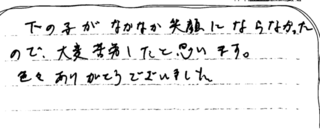 下の子がなかなか笑顔にならなかった
ので、大変苦労したと思います。
色々ありがとうございました